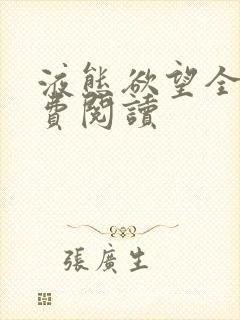 液態欲望全
費閱讀
張廣生